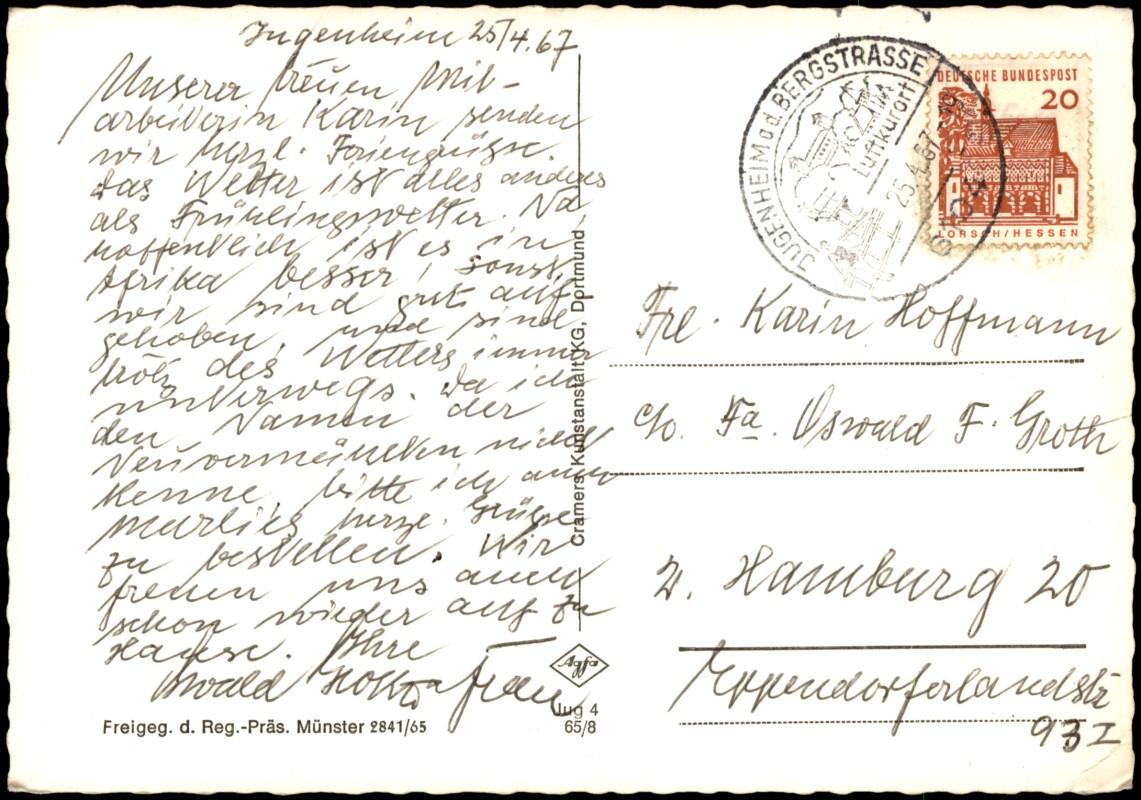 Jugenheim 25/4.67
Unserer treuen Mit-
arbeiterin Karin senden
wir herzl. Feriengrüsse.
Das Wetter ist alles andere
als Frühlingswetter. Na
hoffentlich ist es in
Afrika besser, sonst
wir sind gut auf-
gehoben, und sind
trotz des Wetters immer
unterwegs. Da ich
den Namen der
Neuvermählten nicht
kenne, bitte ich auch
Marlies herzl. Grüsse
zu bestellen. Wir
freuen uns auch
schon wieder auf zu
Hause. Ihre
Oswald Groth u. Frau
Freigeg. d. Reg.-Präs. Münster 2841/65
Cramers Kunstanstalt KG, Dortmund
Agfa
Jug 4
65/8
JUGENHEIM a.d. BERGSTRASSE
Luftkurort
25.4.67
DEUTSCHE BUNDESPOST
20
LORSCH/HESSEN
Frl. Karin Hoffmann
c/o. Fa. Oswald F. Groth
2. Hamburg 20
Eppendorferlandstr
93 I